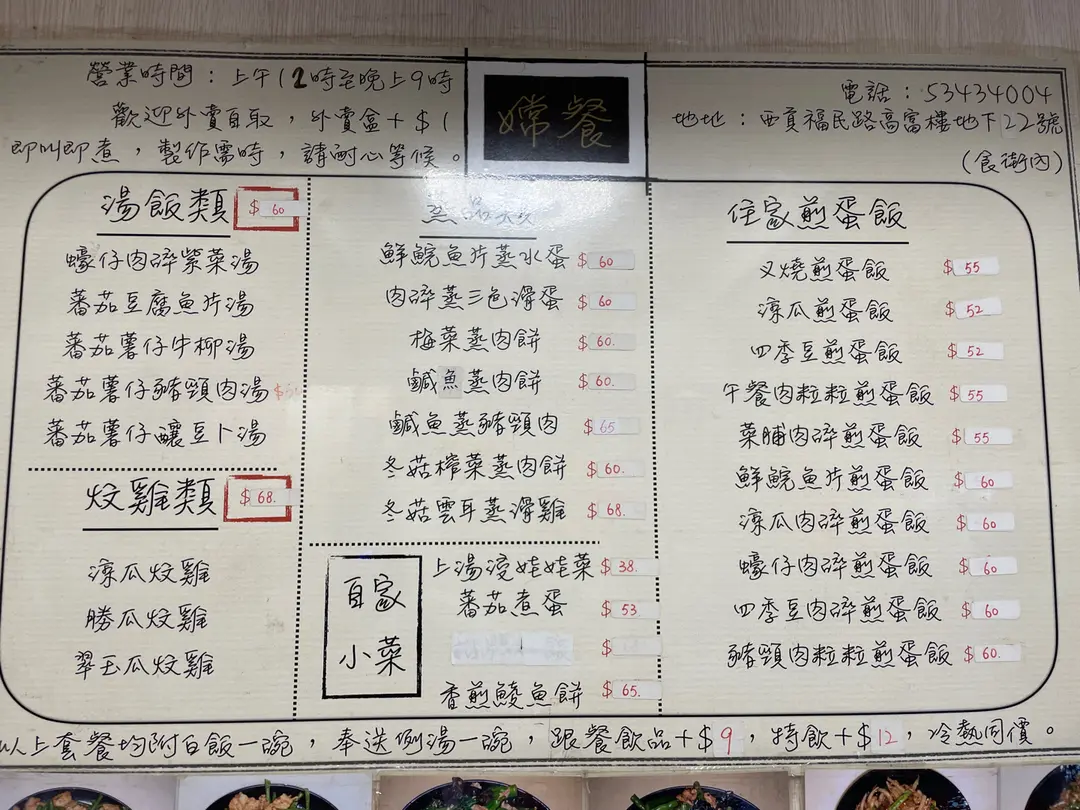 營業時間：上午12時至晚上9時
歡迎外賣自取，外賣盒+$1
即叫即煮，製作需時，請耐心等候。
嫦餐
電話：53434004
地址：西貢福民路高富樓地下22號
(食街內)
湯飯類 $60
蠔仔肉碎紫菜湯
蕃茄豆腐魚片湯
蕃茄薯仔牛柳湯
蕃茄薯仔豬頸肉湯
蕃茄薯仔釀豆卜湯
炆雞類 $68.
涼瓜炆雞
勝瓜炆雞
翠玉瓜炆雞
蒸品類
鮮鯇魚片蒸水蛋 $60
肉碎蒸三色滑蛋 $60
梅菜蒸肉餅 $60.
鹹魚蒸肉餅 $60.
鹹魚蒸豬頸肉 $65
冬菇榨菜蒸肉餅 $60.
冬菇雲耳蒸滑雞 $68.
自家
小菜
上湯浸娃娃菜 $38.
蕃茄煮蛋 $53
$
香煎鯪魚餅 $65.
住家煎蛋飯
叉燒煎蛋飯 $55
涼瓜煎蛋飯 $52
四季豆煎蛋飯 $52
午餐肉粒粒煎蛋飯 $55
菜脯肉碎煎蛋飯 $55
鮮鯇魚片煎蛋飯 $60
涼瓜肉碎煎蛋飯 $60
蠔仔肉碎煎蛋飯 $60
四季豆肉碎煎蛋飯 $60
豬頸肉粒粒煎蛋飯 $60.
以上套餐均附白飯一碗，奉送例湯一碗，跟餐飲品+$9，特飲+$12，冷熱同價。